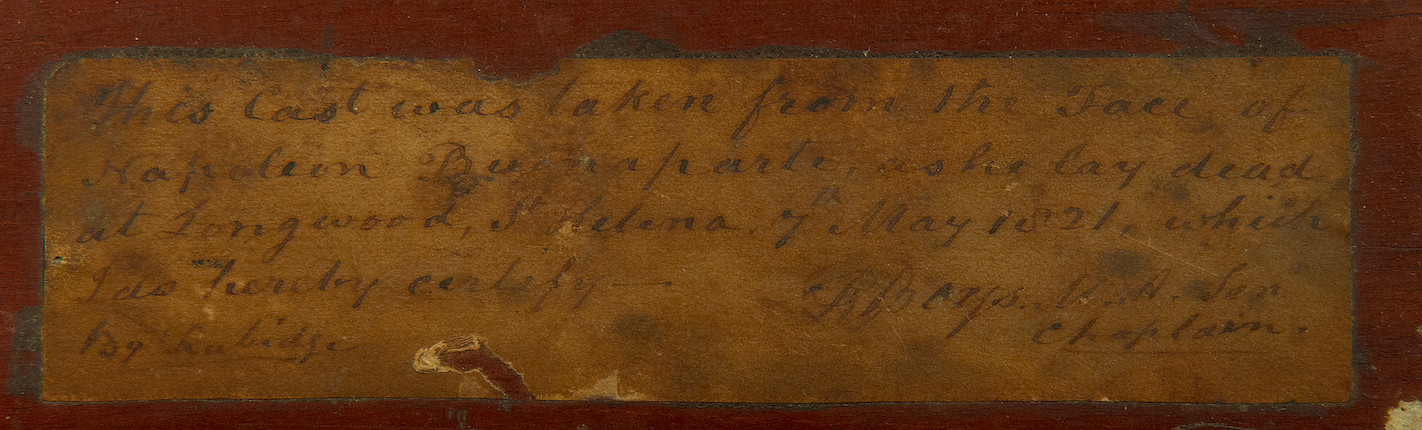 This Cast was taken from the Face of
Napoleon Buonaparte, as he lay dead
at Longwood, St Helena. 7th May 1821, which
I do hereby certify —
R Boys. M.A. Senr
Chaplain.
By Rubidge